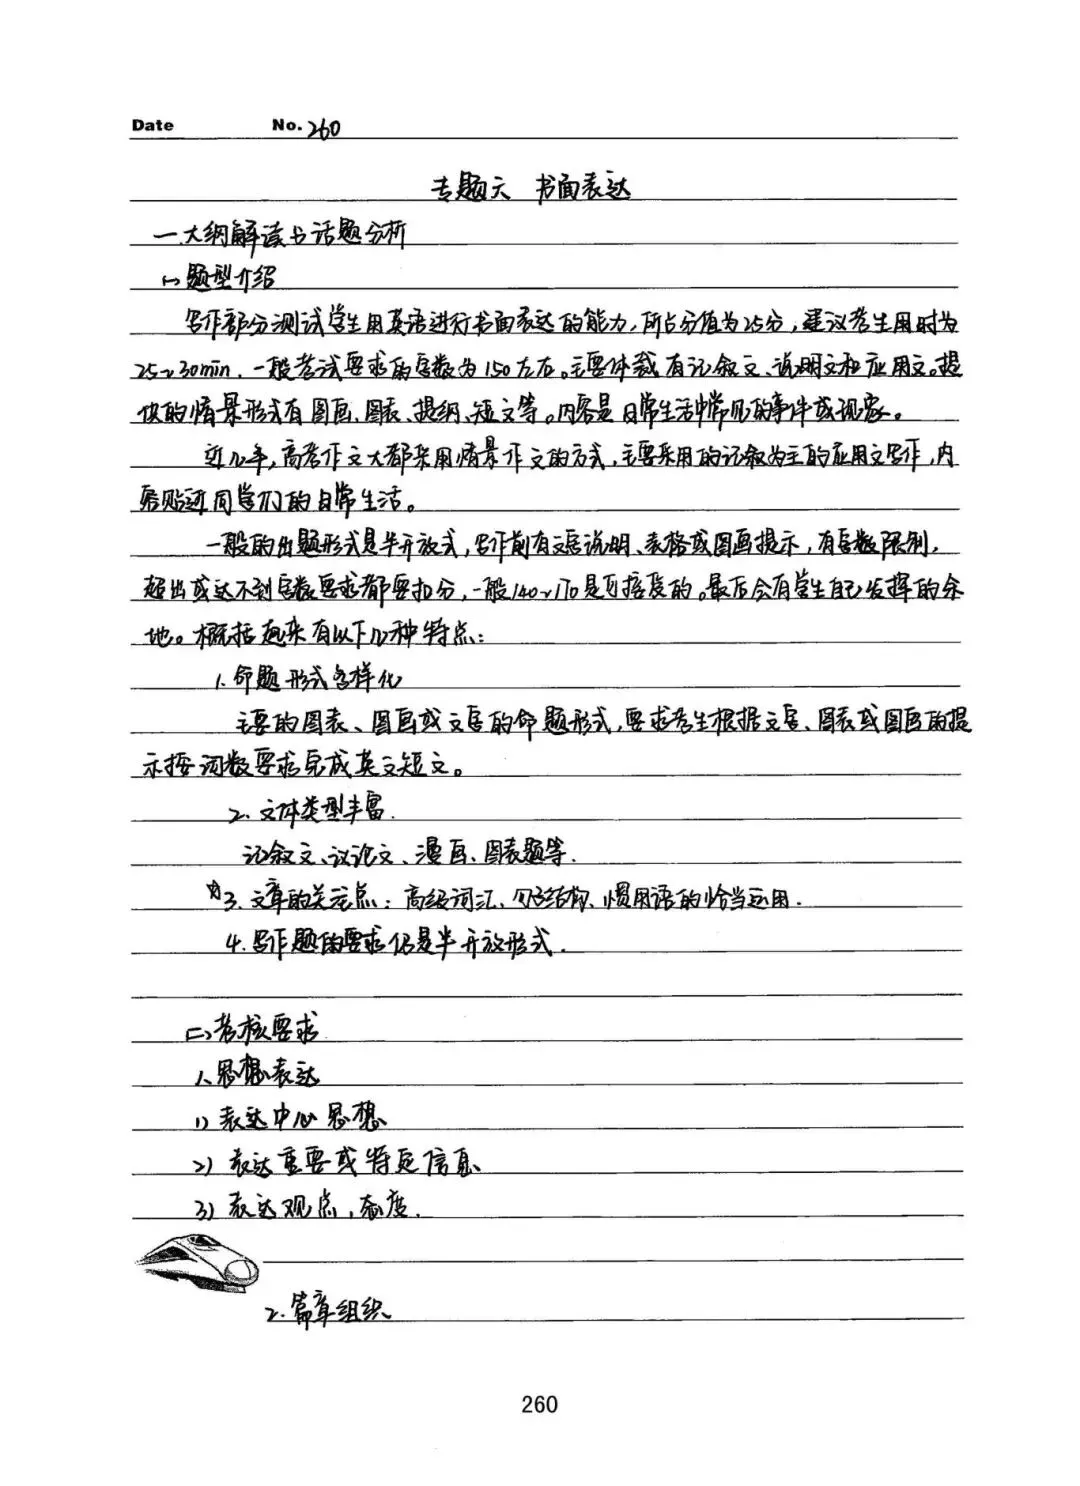 Date No. 260
专题六 书面表达
一.大纲解读与话题分析
(一)题型介绍
写作部分测试学生用英语进行书面表达的能力,所占分值为25分,建议考生用时为
25~30min.一般考试要求的字数为150左右。主要体裁有记叙文、说明文和应用文。提
供的情景形式有图画、图表、提纲、短文等。内容是日常生活中常见的事件或现象。
近几年,高考作文大都采用情景作文的方式,主要采用的记叙为主的应用文写作,内
容贴近同学们的日常生活。
一般的出题形式是半开放式,写作前有文字说明、表格或图画提示,有字数限制,
超出或达不到字数要求都要扣分,一般140~170是可接受的。最后会有学生自己发挥的余
地。概括起来有以下几种特点:
1.命题形式多样化
主要的图表、图画或文字的命题形式,要求考生根据文字、图表或图画的提
示按词数要求完成英文短文。
2.文体类型丰富.
记叙文、议论文、漫画、图表题等.
☆3.文章的关键点:高级词汇、句子结构、惯用语的恰当运用.
4.写作题的要求仍是半开放形式.
(二)考核要求
1.思想表达
1)表达中心思想
2)表达重要或特定信息
3)表达观点,态度.
2.篇章组织
260